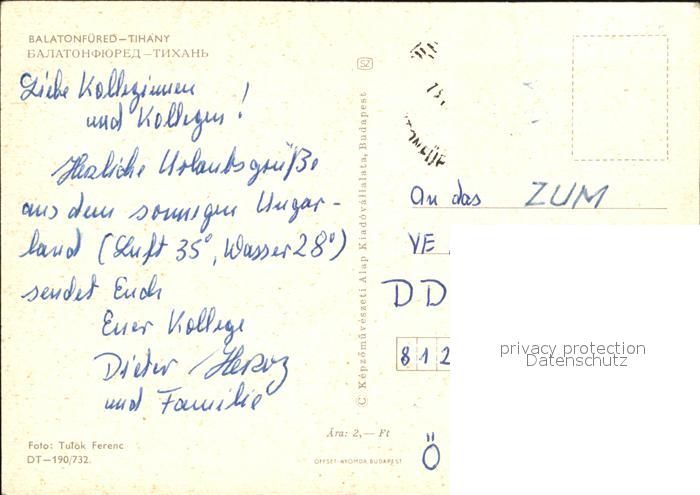 BALATONFÜRED–TIHANY
БАЛАТОНФЮРЕД–ТИХАНЬ
Liebe Kolleginnen
und Kollegen!
Herzliche Urlaubsgrüße
aus dem sonnigen Ungar-
land (Luft 35°, Wasser 28°)
sendet Euch
Euer Kollege
Dieter Herzog
und Familie
Foto: Tulok Ferenc
DT–190/732.
SZ
© Képzőművészeti Alap Kiadóvállalata, Budapest
Ára: 2,— Ft
OFFSET-NYOMDA, BUDAPEST
An das ZUM
VE
DD
812
Ö
privacy protection
Datenschutz